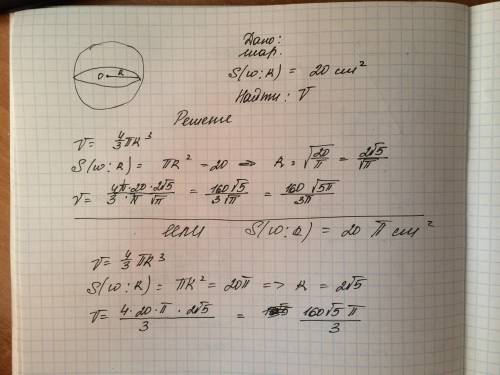 O R
Дано:
шар.
S(ω;R) = 20 см²
Найти: V
Решение
V = 4/3 πR³
S(ω;R) = πR² = 20 => R = √(20/π) = 2√5/√π
V = 4π·20·2√5/3·π√π = 160√5/3√π = 160√5π/3π
или S(ω;R) = 20 π см²
V = 4/3 πR³
S(ω;R) = πR² = 20π => R = 2√5
V = 4·20·π·2√5/3 = 160√5 π/3